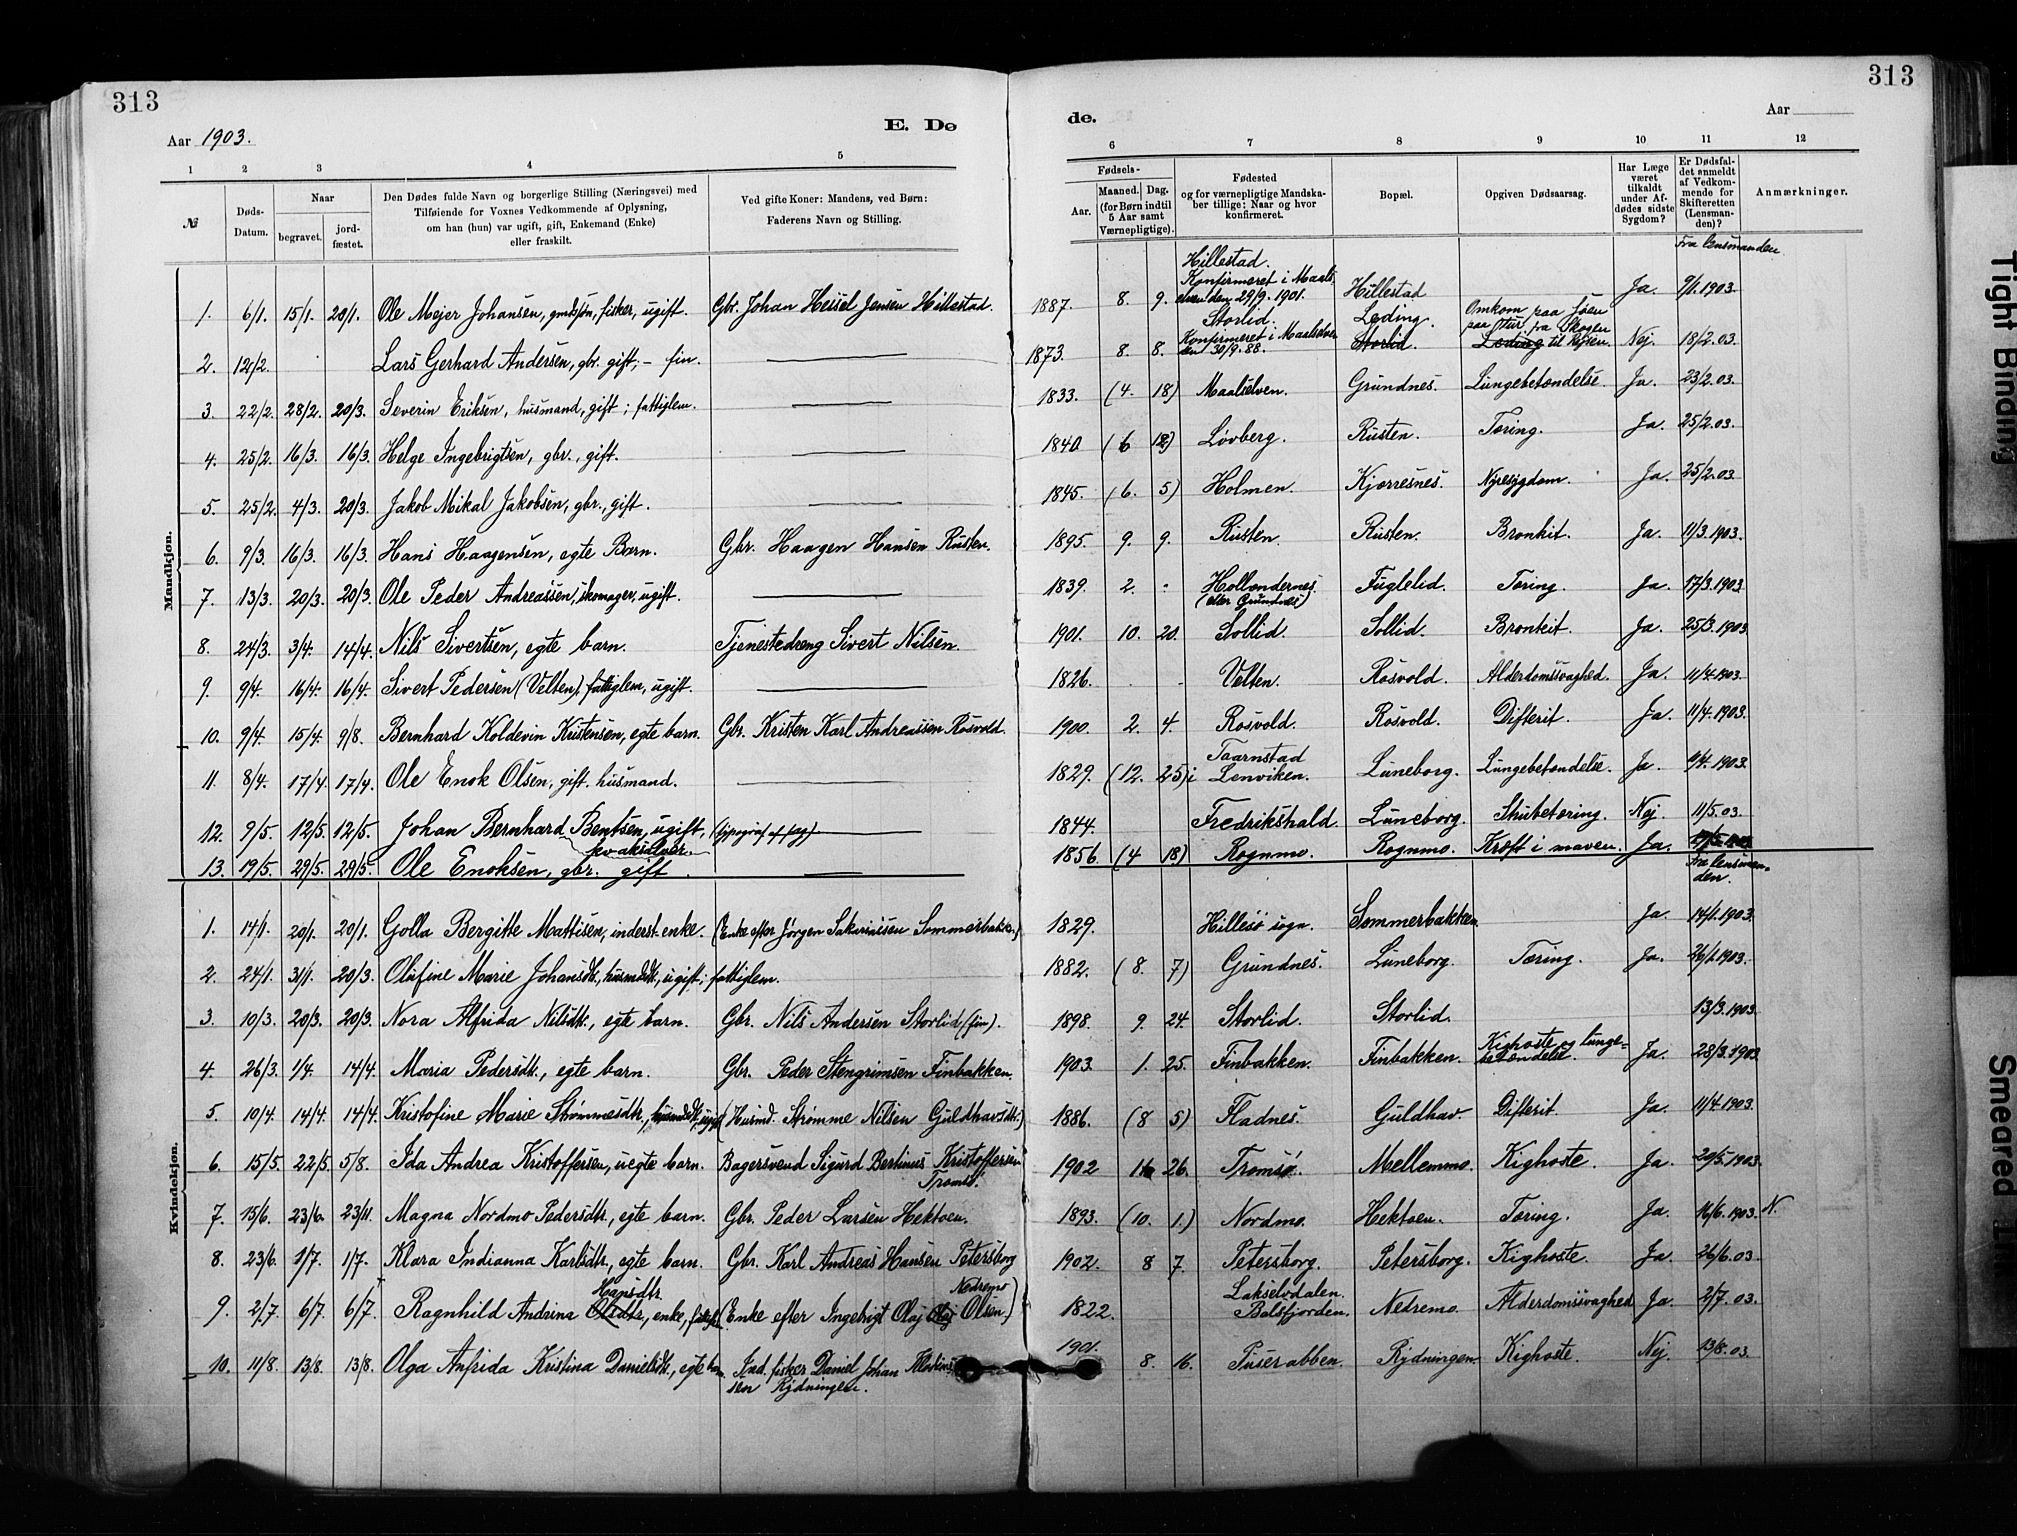 313
Aar 1903.
E. Dø
1 2 3 4 5
№
Døds-Datum.
Naar
begravet.
jord-fæstet.
Den Dødes fulde Navn og borgerlige Stilling (Næringsvei) med
Tilføiende for Voxnes Vedkommende af Oplysning,
om han (hun) var ugift, gift, Enkemand (Enke)
eller fraskilt.
Ved gifte Koner: Mandens, ved Børn:
Faderens Navn og Stilling.
Mandkjøn.
1. 6/1. 15/1. 20/1. Ole Mejer Johansen, gmdsøn, fisker, ugift. Gbr. Johan Hessel Jensen Hillestad.
2. 12/2. Lars Gerhard Andersen, gbr. gift, – fin.
3. 22/2. 28/2. 20/3. Severin Eriksen, husmand, gift; fattiglem.
4. 25/2. 16/3. 16/3. Helge Ingebrigtsen, gbr., gift.
5. 25/2. 4/3. 20/3. Jakob Mikal Jakobsen, gbr., gift.
6. 9/3. 16/3. 16/3. Hans Haagensen, egte Barn. Gbr. Haagen Hansen Rusten.
7. 13/3. 20/3. 20/3. Ole Peder Andreassen, skomager, ugift.
8. 24/3. 3/4. 14/4. Nils Sivertsen, egte barn. Tjenestedreng Sivert Nilsen.
9. 9/4. 16/4. 16/4. Sivert Pedersen (Velten), fattiglem, ugift.
10. 9/4. 15/4. 9/8. Bernhard Koldevin Kristensen, egte barn. Gbr. Kristen Karl Andreassen Rosvold.
11. 8/4. 17/4. 17/4. Ole Enok Olsen, gift. husmand.
12. 9/5. 12/5. 12/5. Johan Bernhard Bentsen, ugift, (typograf af fag)
kvaksalver.
13. 19/5. 29/5. 29/5. Ole Enoksen, gbr. gift
Kvindekjøn.
1. 14/1. 20/1. 20/1. Golla Bergitte Mattisen, inderst. enke. (Enke efter Jørgen Sakariassen Sommerbakken)
2. 24/1. 31/1. 20/3. Olufine Marie Johansdtr., husmdsdtr., ugift; fattiglem.
3. 10/3. 20/3. 20/3. Nora Alfrida Nilsdtr., egte barn. Gbr. Nils Andersen Storlid (fin).
4. 26/3. 1/4. 14/4. Maria Pedersdtr., egte barn. Gbr. Peder Stengrimsen Finbakken.
5. 10/4. 14/4. 14/4. Kristofine Marie Strømmesdtr., husmdsdtr., ugift (Husmd. Strømme Nilsen Guldhavsdtr.)
6. 15/5. 22/5. 5/8. Ida Andrea Kristoffersen, uegte barn. Bagersvend Sigurd Bertinus Kristoffersen
Tromsø.
7. 15/6. 23/6. 23/11. Magna Nordmo Pedersdtr., egte barn. Gbr. Peder Larsen Hektoen.
8. 23/6. 1/7. 1/7. Klara Indianna Karlsdtr., egte barn. Gbr. Karl Andreas Hansen Petersborg
Hansdtr. Nedremo
9. 2/7. 6/7. 6/7. Ragnhild Andrina Olsdtr., enke, (Enke efter Ingebrigt Olaj Olaj Olsen.)
10. 11/8. 13/8. 13/8. Olga Anfrida Kristina Danielsdtr., egte barn. Ind. fisker Daniel Johan
sen Rydningen.
313
de.
Aar
6 7 8 9 10 11 12
Fødsels-
Aar.
Maaned. Dag.
(for Børn indtil
5 Aar samt
Værnepligtige).
Fødested
og for værnepligtige Mandska-
ber tillige: Naar og hvor
konfirmeret.
Bopæl.
Opgiven Dødsaarsag.
Har Læge
været
tilkaldt
under Af-
dødes sidste
Sygdom?
Er Dødsfal-
det anmeldt
af Vedkom-
mende for
Skifteretten
(Lensman-
den)?
Anmærkninger.
Fra lensmanden
Hillestad.
Konfirmeret i Maals
1887. 8. 9. elven den 29/9. 1901. Hillestad Ja. 9/1. 1903.
Storlid. Leding. Omkom paa Søen
paa Otur fra Skogen
1873. 8. 8. Konfirmeret i Maalselven den 30/9. 88. Storlid. Leding til Nej. 18/2. 03.
1833. (4. 18) Maalselven. Grundnes. Lungebetændelse. Ja. 23/2. 03.
1840 (6 12) Løvberg. Rusten. Tæring. Ja. 25/2. 03.
1845. (6. 5) Holmen. Kjærresnes. Nyresygdom. Ja. 25/2. 03.
1895. 9. 9. Rusten. Rusten. Bronkit. Ja. 11/3. 1903.
1839. 2. Hollendernes. Fuglelid. Tæring. Ja. 17/3. 1903
(eller Grundnes)
1901. 10. 20. Sollid. Sollid. Bronkit. Ja. 25/3. 1903
1826. Velten. Rosvold. Alderdomssvaghed. Ja. 11/4. 1903.
1900. 2. 4. Rosvold. Rosvold. Difterit. Ja. 11/4. 1903.
Taarnstad
1829. (12. 25) i Lenviken. Luneborg. Lungebetændelse. Ja. 9/4. 1903.
1844. Fredrikshald. Luneborg. Strubetæring. Nej. 11/5. 03.
1856. (4 18) Rognmo. Rognmo. Kræft i maven. Ja.
Fra lensman-
den.
1829. Hillesø sogn. Sommerbakken Ja. 14/1. 1903.
1882. (8. 7) Grundnes. Luneborg. Tæring. Ja. 26/1. 1903.
1898. 9. 24. Storlid. Storlid. 13/3. 1903.
1903. 1. 25. Finbakken. Finbakken. Kighoste og lunge-
betændelse. Ja. 28/3. 1903.
1886. (8 5) Fladnes. Guldhav. Difterit. Ja. 11/4. 1903.
1902 26. Tromsø. Mellemmo. Kighoste. Ja. 20/5. 1903.
1893. (10. 1.) Nordmo. Hektoen. Tæring. Ja. 16/6. 1903. N.
1902. 8 7. Petersborg. Petersborg. Kighoste. Ja. 26/6. 03.
Lakselvdalen.
1822. Balsfjorden. Nedremo. Alderdomssvaghed Ja. 2/7. 03.
1901. 8. 16. Puserabben. Rydningen. Kighoste. Nej. 13/8. 03.
Tight Binding
Smeared